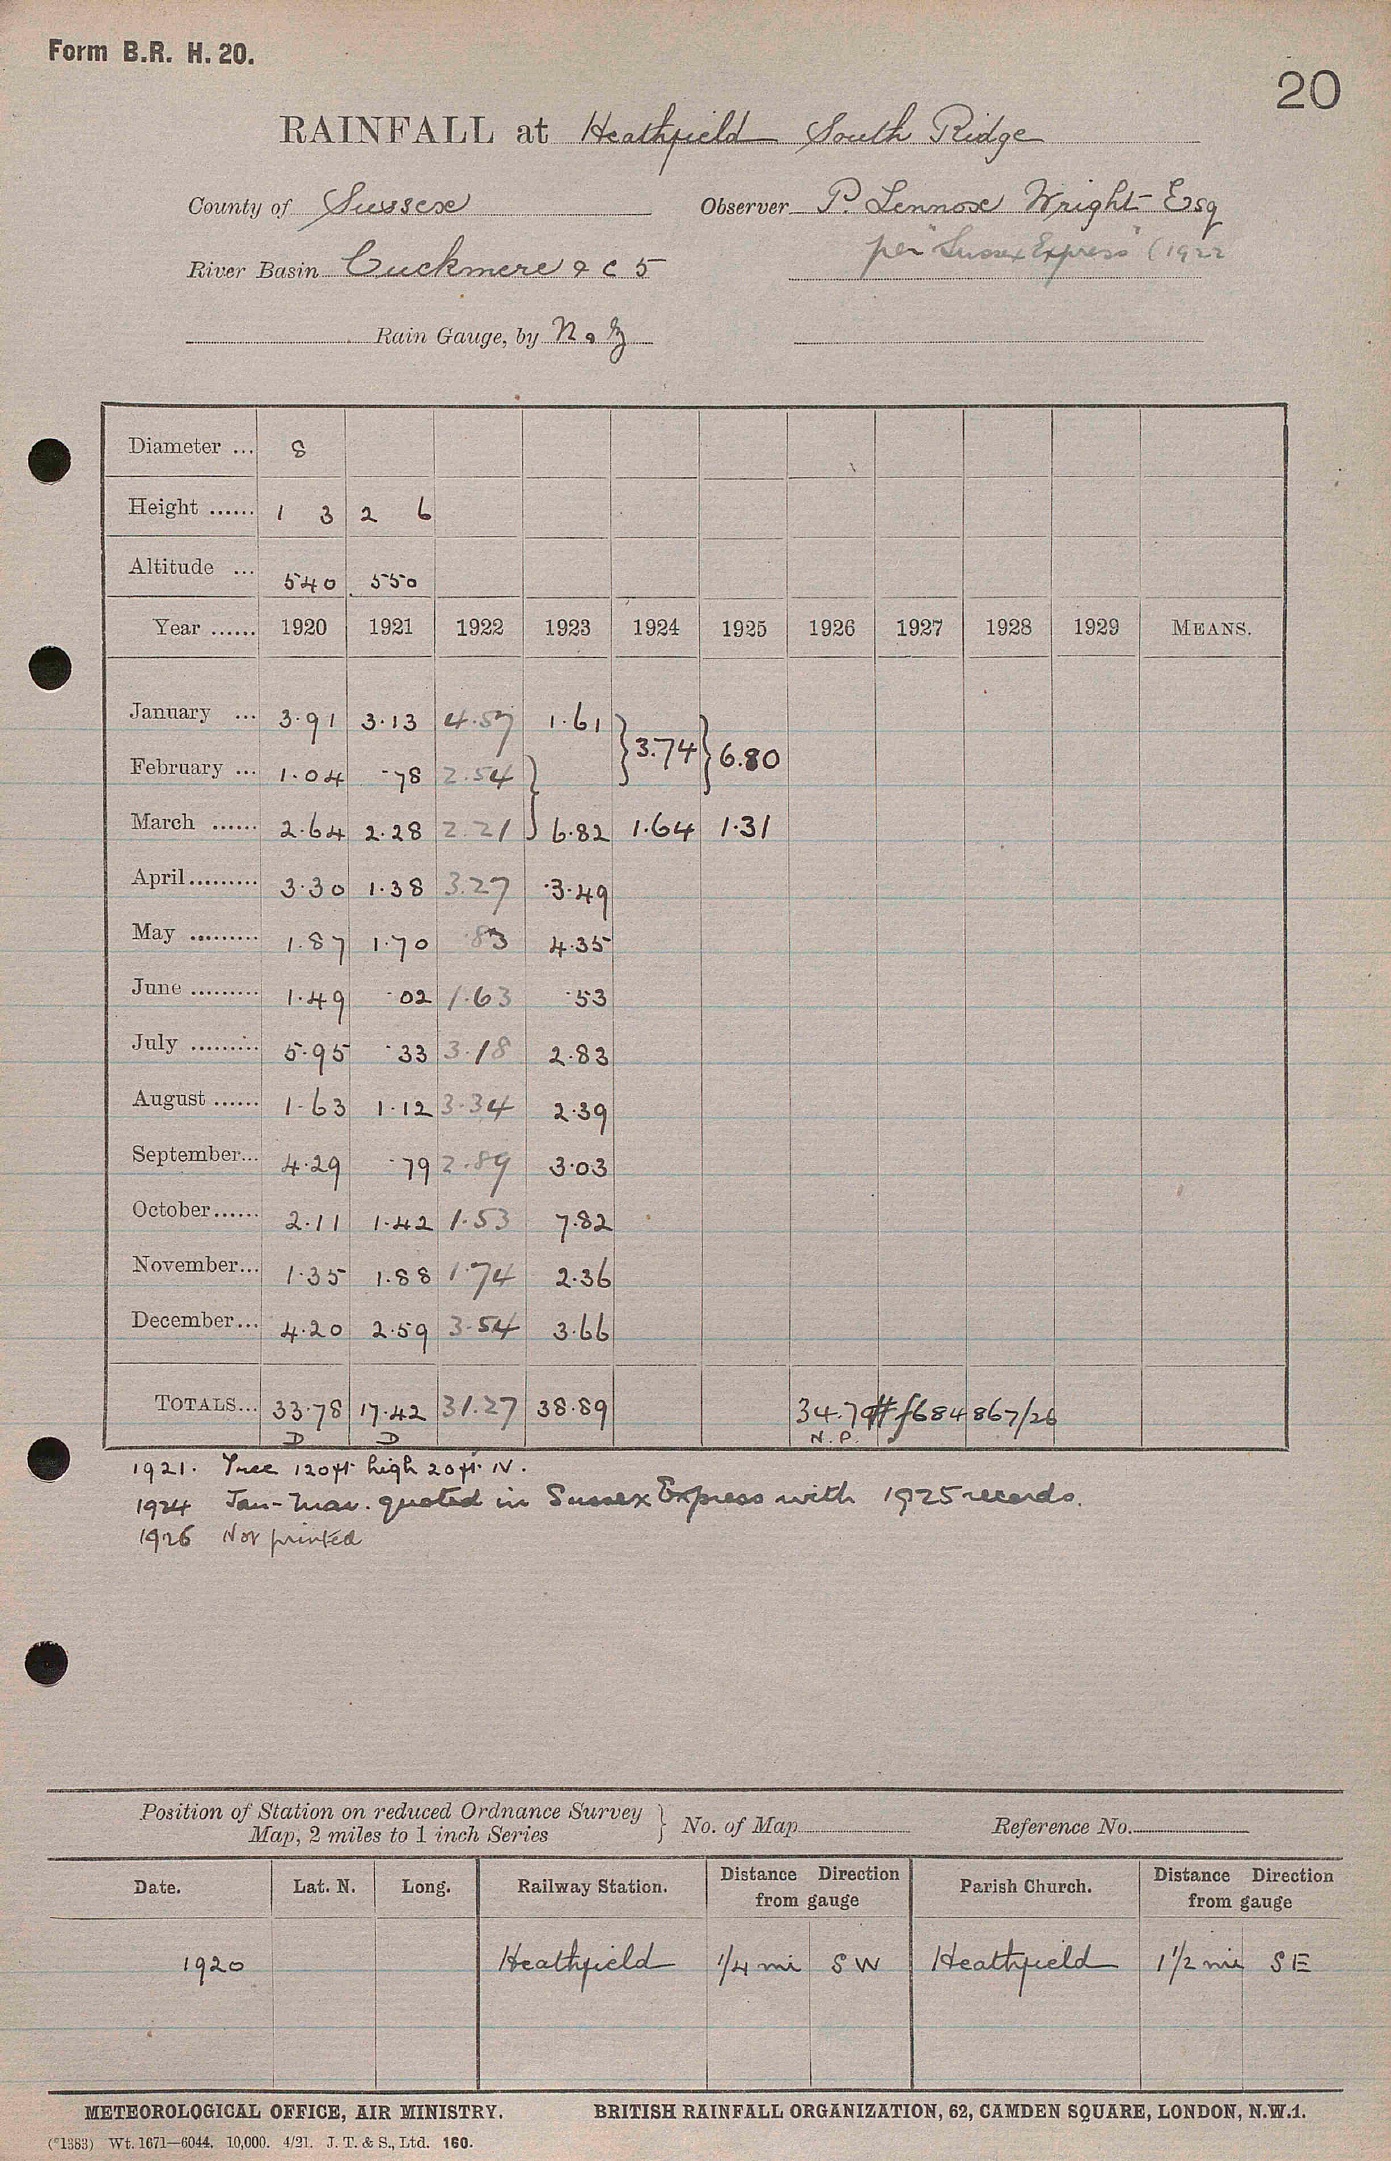 Form B.R. H. 20.
20
RAINFALL at Heathfield South Ridge
County of Sussex Observer P. Lennox Wright Esq
per "Sussex Express" (1922
River Basin Cuckmere & C 5
Rain Gauge, by N & Z
Diameter ... 8
Height ...... 1 3 2 6
Altitude ... 540 550
Year ...... 1920 1921 1922 1923 1924 1925 1926 1927 1928 1929 MEANS.
January ... 3.91 3.13 4.57 1.61
} 3.74 } 6.80
February ... 1.04 .78 2.54 }
March ...... 2.64 2.28 2.21 6.82 1.64 1.31
April......... 3.30 1.38 3.27 3.49
May ......... 1.87 1.70 .83 4.35
June ......... 1.49 .02 1.63 .53
July ......... 5.95 .33 3.18 2.83
August ...... 1.63 1.12 3.34 2.39
September... 4.29 .79 2.89 3.03
October...... 2.11 1.42 1.53 7.82
November... 1.35 1.88 1.74 2.36
December... 4.20 2.59 3.54 3.66
TOTALS... 33.78 17.42 31.27 38.89 34.79 # f684867/26
D D N.P.
1921. Tree 120ft high 20ft IV.
1924 Jan-Mar. quoted in Sussex Express with 1925 records.
1926 Not printed
Position of Station on reduced Ordnance Survey
Map, 2 miles to 1 inch Series } No. of Map Reference No.
Date. Lat. N. Long. Railway Station. Distance Direction from gauge Parish Church. Distance Direction from gauge
1920 Heathfield 1/4 mi SW Heathfield 1 1/2 mi SE
METEOROLOGICAL OFFICE, AIR MINISTRY. BRITISH RAINFALL ORGANIZATION, 62, CAMDEN SQUARE, LONDON, N.W.1.
(*1383) Wt. 1671—6044. 10,000. 4/21. J. T. & S., Ltd. 160.